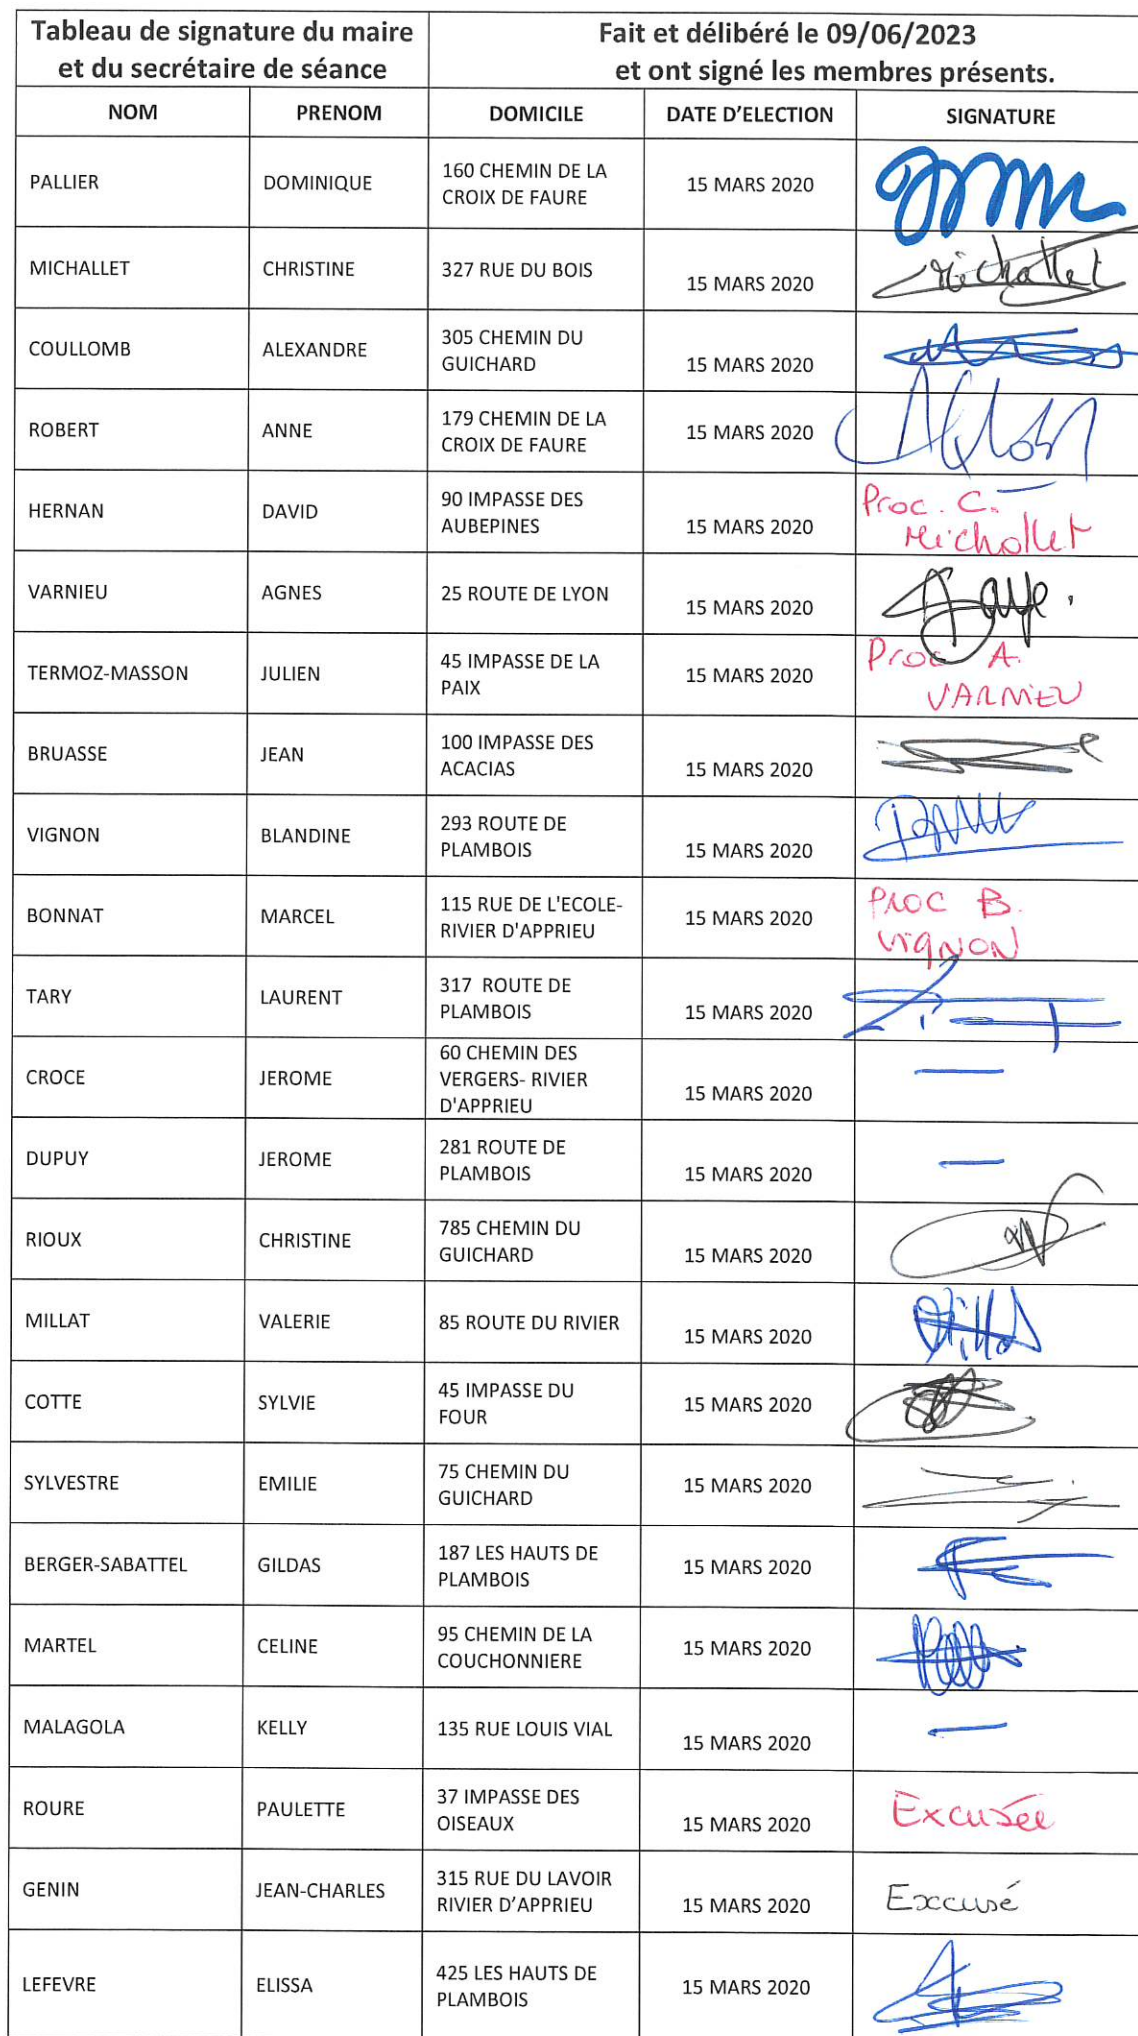 Tableau de signature du maire
et du secrétaire de séance
Fait et délibéré le 09/06/2023
et ont signé les membres présents.
NOM PRENOM DOMICILE DATE D'ELECTION SIGNATURE
PALLIER DOMINIQUE 160 CHEMIN DE LA
CROIX DE FAURE 15 MARS 2020
MICHALLET CHRISTINE 327 RUE DU BOIS 15 MARS 2020 Michallet
COULLOMB ALEXANDRE 305 CHEMIN DU
GUICHARD 15 MARS 2020
ROBERT ANNE 179 CHEMIN DE LA
CROIX DE FAURE 15 MARS 2020
HERNAN DAVID 90 IMPASSE DES
AUBEPINES 15 MARS 2020 Proc. C.
Michollet
VARNIEU AGNES 25 ROUTE DE LYON 15 MARS 2020
TERMOZ-MASSON JULIEN 45 IMPASSE DE LA
PAIX 15 MARS 2020 Proc A.
VARNIEU
BRUASSE JEAN 100 IMPASSE DES
ACACIAS 15 MARS 2020
VIGNON BLANDINE 293 ROUTE DE
PLAMBOIS 15 MARS 2020
BONNAT MARCEL 115 RUE DE L'ECOLE-
RIVIER D'APPRIEU 15 MARS 2020 PROC B.
VIGNON
TARY LAURENT 317 ROUTE DE
PLAMBOIS 15 MARS 2020
CROCE JEROME 60 CHEMIN DES
VERGERS- RIVIER
D'APPRIEU 15 MARS 2020 —
DUPUY JEROME 281 ROUTE DE
PLAMBOIS 15 MARS 2020 —
RIOUX CHRISTINE 785 CHEMIN DU
GUICHARD 15 MARS 2020
MILLAT VALERIE 85 ROUTE DU RIVIER 15 MARS 2020
COTTE SYLVIE 45 IMPASSE DU
FOUR 15 MARS 2020
SYLVESTRE EMILIE 75 CHEMIN DU
GUICHARD 15 MARS 2020
BERGER-SABATTEL GILDAS 187 LES HAUTS DE
PLAMBOIS 15 MARS 2020
MARTEL CELINE 95 CHEMIN DE LA
COUCHONNIERE 15 MARS 2020
MALAGOLA KELLY 135 RUE LOUIS VIAL 15 MARS 2020 —
ROURE PAULETTE 37 IMPASSE DES
OISEAUX 15 MARS 2020 Excusée
GENIN JEAN-CHARLES 315 RUE DU LAVOIR
RIVIER D'APPRIEU 15 MARS 2020 Excusé
LEFEVRE ELISSA 425 LES HAUTS DE
PLAMBOIS 15 MARS 2020